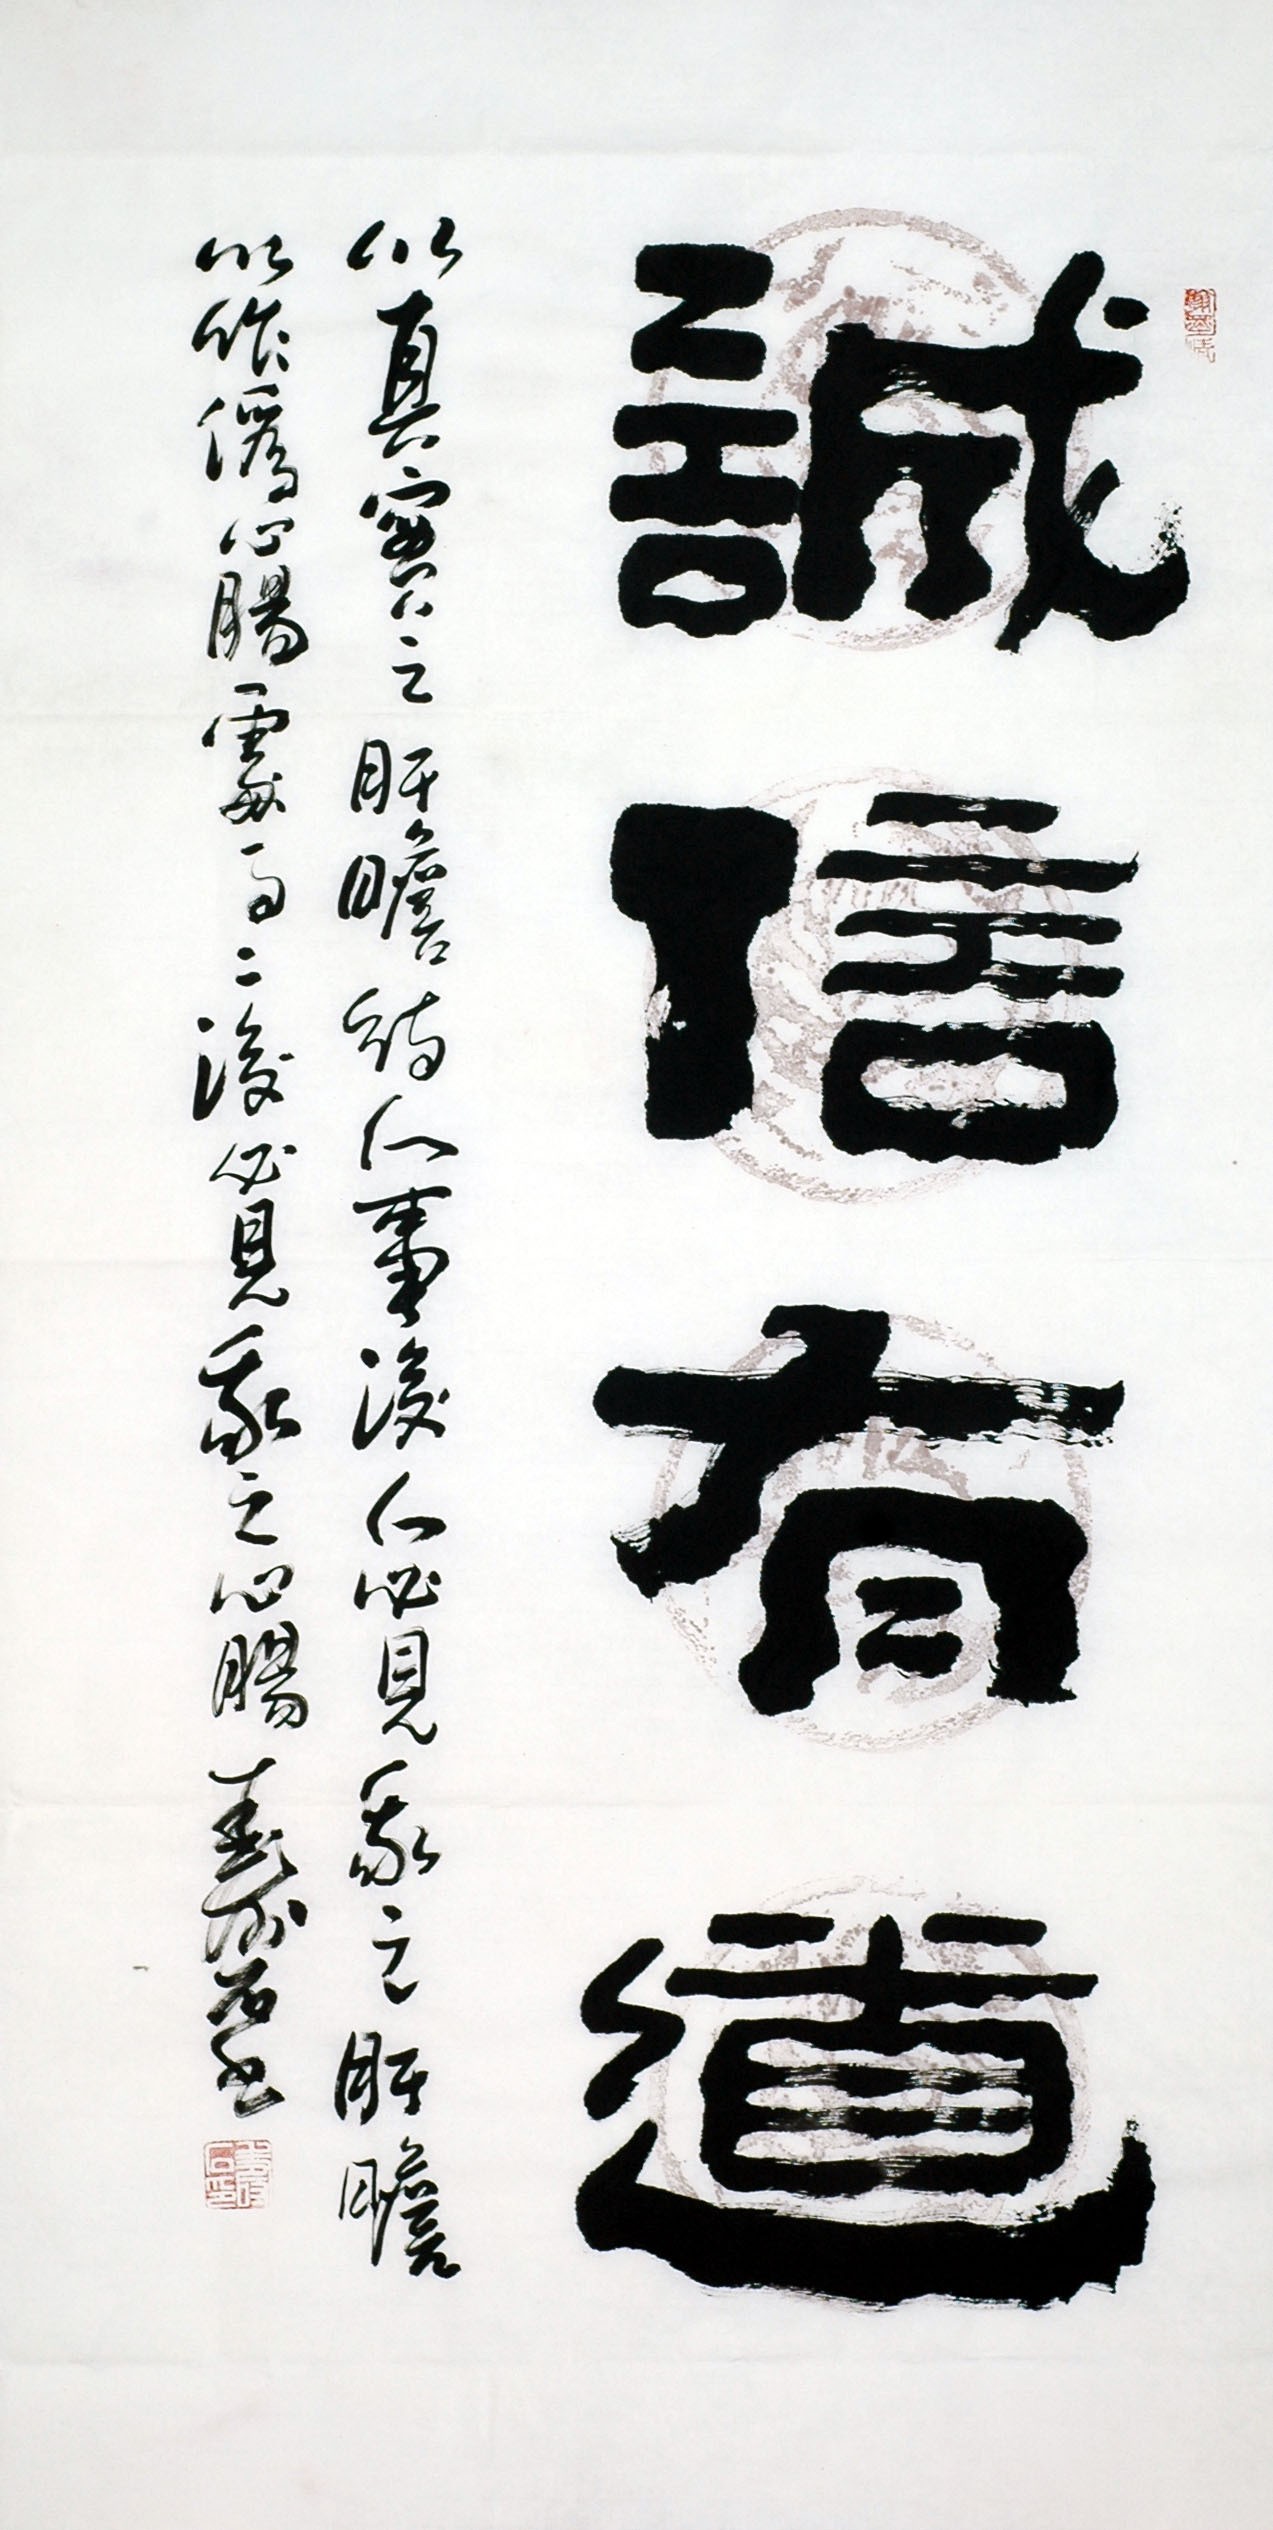 誠信有道
以真實之肝膽待人事後人必見我之肝膽
以作偽心腸處事事後必見我之心腸